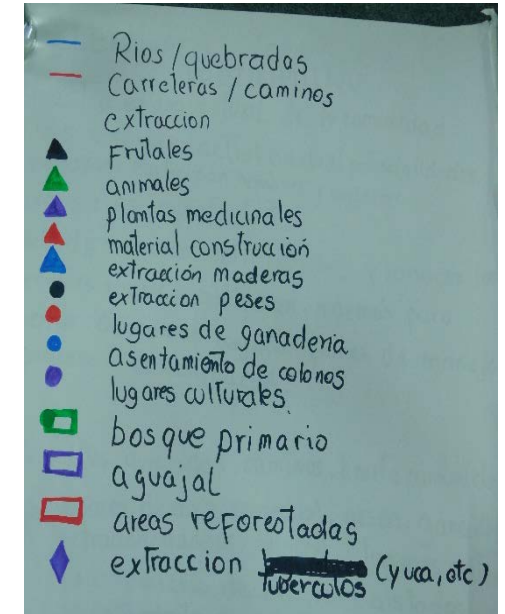 Rios/quebradas
Carreteras / caminos
extraccion
Frutales
animales
plantas medicinales
material construcción
extracción maderas
extraccion peses
lugares de ganaderia
asentamiento de colonos
lugares culturales.
bosque primario
aguajal
areas reforestadas
extraccion (yuca, etc)
tuberculos